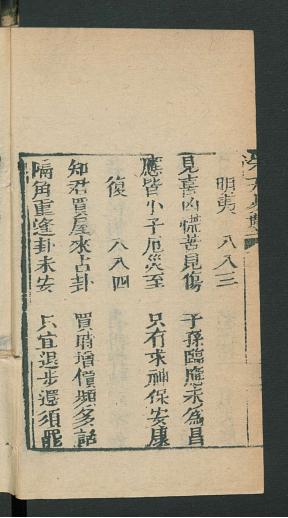 明夷 八八三
見喜凶慌苦見傷 子孫臨應未為昌
應皆小子厄災至 只有求神保安康
復 八八四
知君買屋來占卦 買時增價頻多話
隔角重逢卦未安 只宜退步還須罷